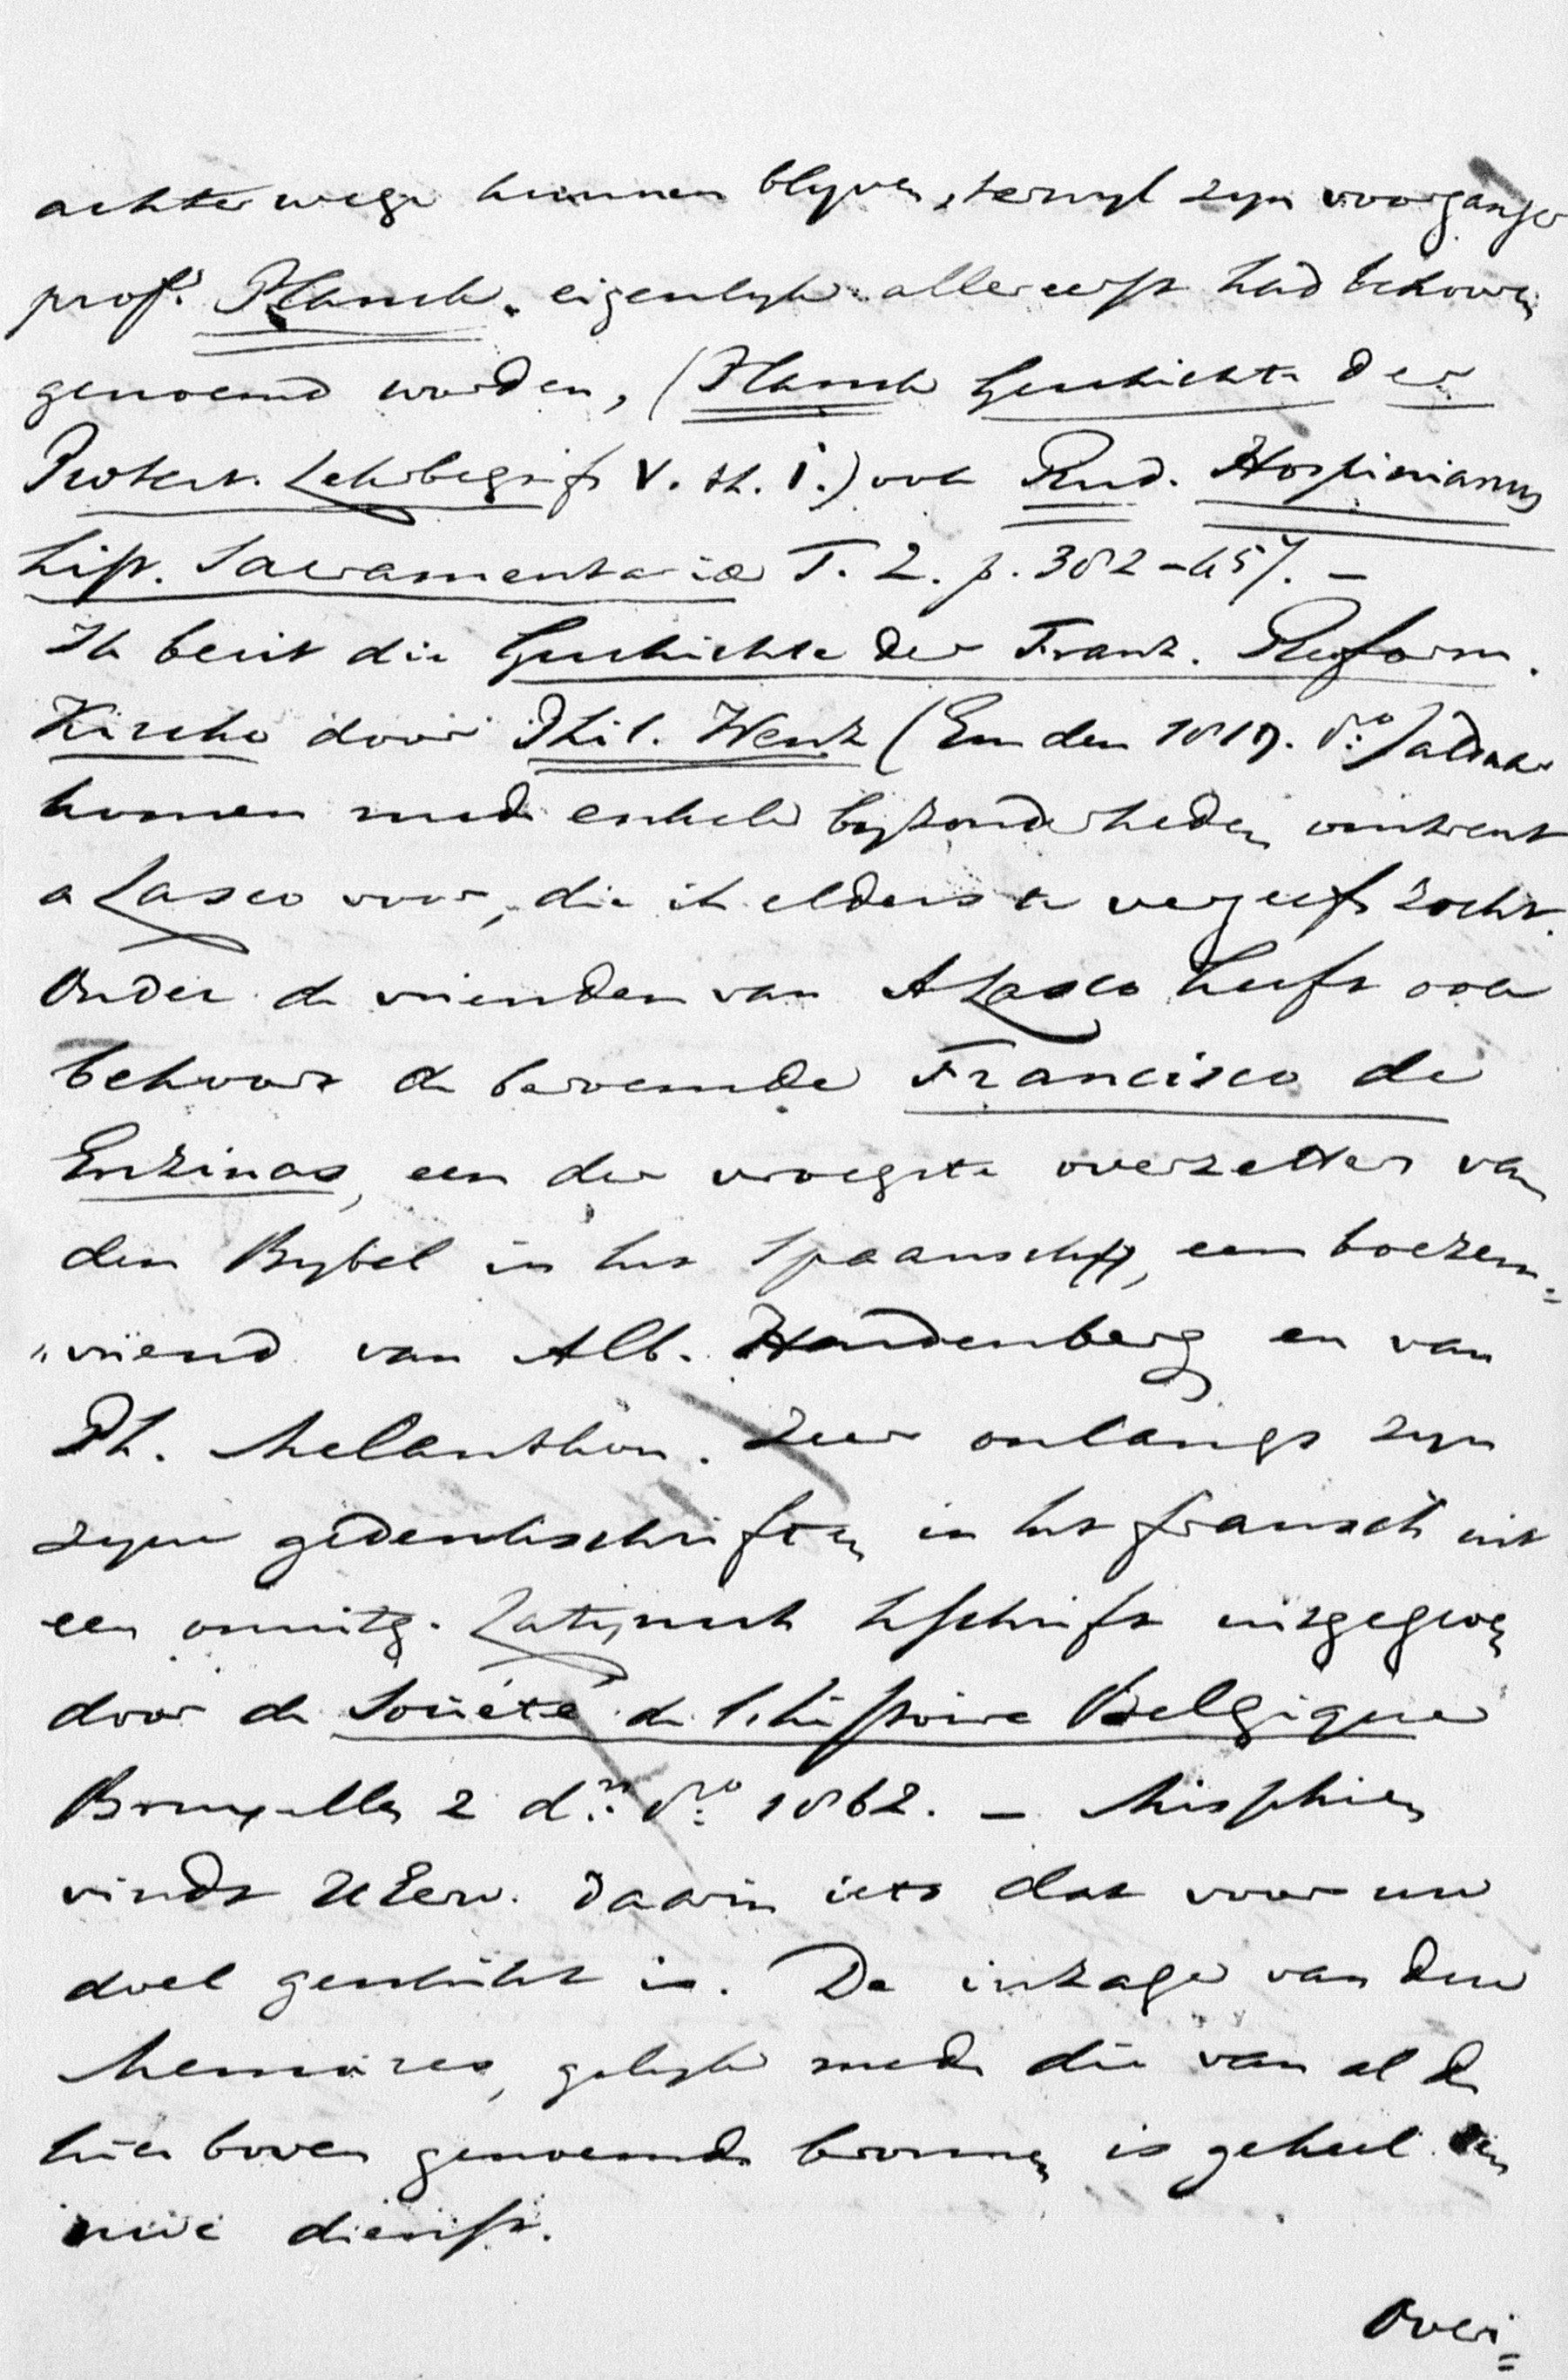 achterwege kunnen blyven, terwyl zyn voorganger
prof.r Planck. eigenlyk allereerst had behooren
genoemd worden, (Planck Geschichte der
Protest. Lehrbegrifs V. th. i.) ook Rud. Hospinianus
hist. Sacramentariæ T. 2. p. 382-457. –
Ik bezit die Geschichte der Franz. Reform.
Kirche door Phil. Wenz (Emden 1819. 8.o) aldaar
komen mede enkele byzonderheden omtrent
a Lasco voor, die ik elders te vergeefs zocht.
Onder de vrienden van A Lasco heeft ook
behoort de beroemde Francisco de
Enzinas, een der vroegste overzetters van
den Bybel in het Spaansch, een boezem=
„vriend van Alb. Hardenberg en van
Ph. Melanthon. Zeer onlangs zyn
zyne gedenkschriften in het fransch uit
een onuitg. Latynsch hschrift uitgegeven
door de Société de l'histoire Belgique
Bruxelles 2 d.n 8.o 1862. – Misschien
vindt UEerw. daarin iets dat voor uw
doel geschikt is. De inzage van deze
Memoires, gelyk mede die van al de
hier boven genoemde bronnen is geheel ten
uwe dienst.
Over=